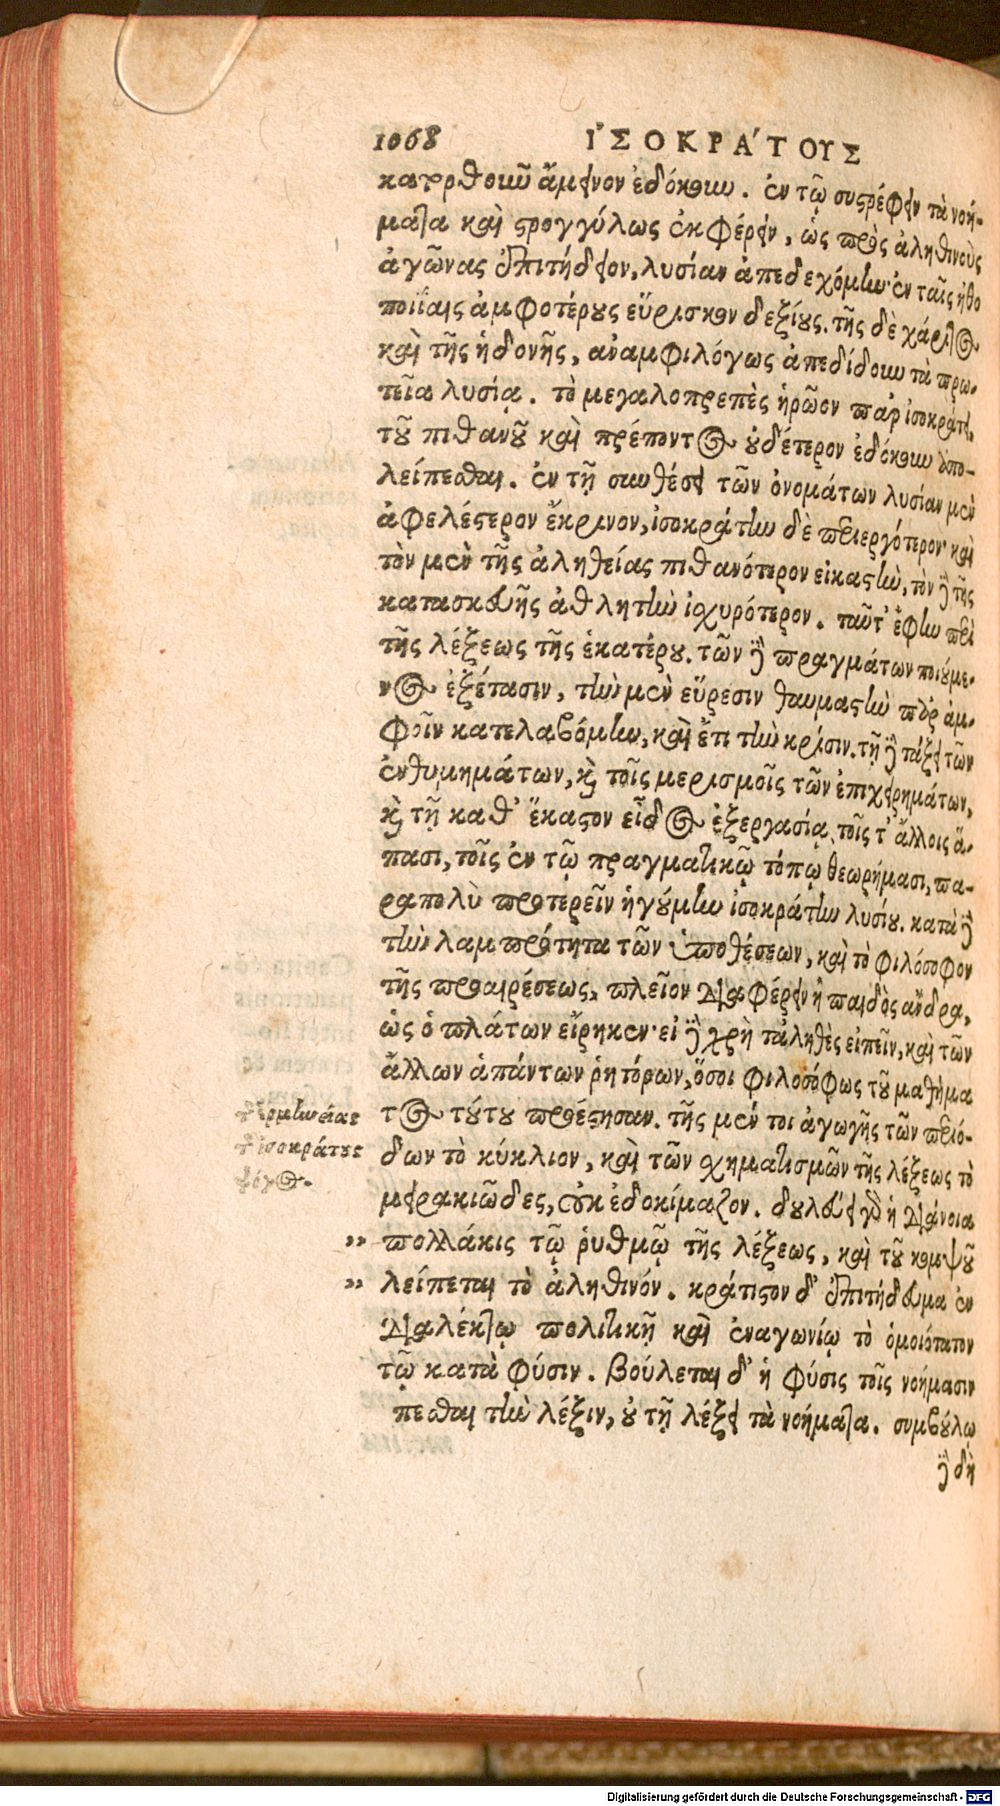 1068 ἸΣΟΚΡΆΤΟΥΣ
κατορθοῦν ἄμεινον ἐδόκουν. ἐν τῷ συστρέφειν τὰ νοή-
ματα καὶ στρογγύλως ἐκφέρειν, ὡς πρὸς ἀληθινοὺς
ἀγῶνας ἐπιτήδειον, λυσίαν ἀπεδεχόμην· ἐν ταῖς ἠθο
ποιΐαις ἀμφοτέρους εὕρισκον δεξίους. τῆς δὲ χάριτος
καὶ τῆς ἡδονῆς, ἀναμφιλόγως ἀπεδίδουν τὰ πρω-
τεῖα λυσίᾳ. τὸ μεγαλοπρεπὲς ἡρῶον παρ' ἰσοκράτει.
τοῦ πιθανοῦ καὶ πρέποντος οὐδέτερον ἐδόκουν ἀπο-
λείπεσθαι. ἐν τῇ συνθέσει τῶν ὀνομάτων λυσίαν μὲν
ἀφελέστερον ἔκρινον, ἰσοκράτην δὲ περιεργότερον· καὶ
τὸν μὲν τῆς ἀληθείας πιθανότερον εἰκαστὴν, τὸν δὲ τῆς
κατασκευῆς ἀθλητὴν ἰσχυρότερον. ταῦτ' ἔφην περὶ
τῆς λέξεως τῆς ἑκατέρου. τῶν δὲ πραγμάτων ποιούμε-
νος ἐξέτασιν, τὴν μὲν εὕρεσιν θαυμαστὴν παρ' ἀμ-
φοῖν κατελαβόμην, καὶ ἔτι τὴν κρίσιν. τῇ δὲ τάξει τῶν
ἐνθυμημάτων, καὶ τοῖς μερισμοῖς τῶν ἐπιχειρημάτων,
καὶ τῇ καθ' ἕκαστον εἶδος ἐξεργασίᾳ, τοῖς τ' ἄλλοις ἅ-
πασι, τοῖς ἐν τῷ πραγματικῷ τόπῳ θεωρήμασι, πα-
ραπολὺ προτερεῖν ἡγούμην ἰσοκράτην λυσίου. κατὰ δὲ
τὴν λαμπρότητα τῶν ὑποθέσεων, καὶ τὸ φιλόσοφον
τῆς προαιρέσεως, πλεῖον διαφέρειν ἢ παιδὸς ἄνδρα,
ὡς ὁ πλάτων εἴρηκεν· εἰ δὲ χρὴ τἀληθὲς εἰπεῖν, καὶ τῶν
ἄλλων ἁπάντων ῥητόρων, ὅσοι φιλοσόφως τοῦ μαθήμα
τος τούτου προέστησαν. τῆς μέν τοι ἀγωγῆς τῶν περιό-
δων τὸ κύκλιον, καὶ τῶν σχηματισμῶν τῆς λέξεως τὸ
μειρακιῶδες, οὐκ ἐδοκίμαζον. δουλεύει γὰρ ἡ διάνοια
,, πολλάκις τῷ ῥυθμῷ τῆς λέξεως, καὶ τοῦ κομψοῦ
,, λείπεται τὸ ἀληθινόν. κράτιστον δ' ἐπιτήδευμα ἐν
διαλέκτῳ πολιτικῇ καὶ ἐναγωνίῳ τὸ ὁμοιότατον
τῷ κατὰ φύσιν. βούλεται δ' ἡ φύσις τοῖς νοήμασιν
πεσθαι τὴν λέξιν, οὐ τῇ λέξει τὰ νοήματα. συμβούλῳ
δὲ δὴ
τῆς ἑρμηνείας
τῆς ἰσοκράτους
ψόγος.
Digitalisierung gefördert durch die Deutsche Forschungsgemeinschaft - DFG